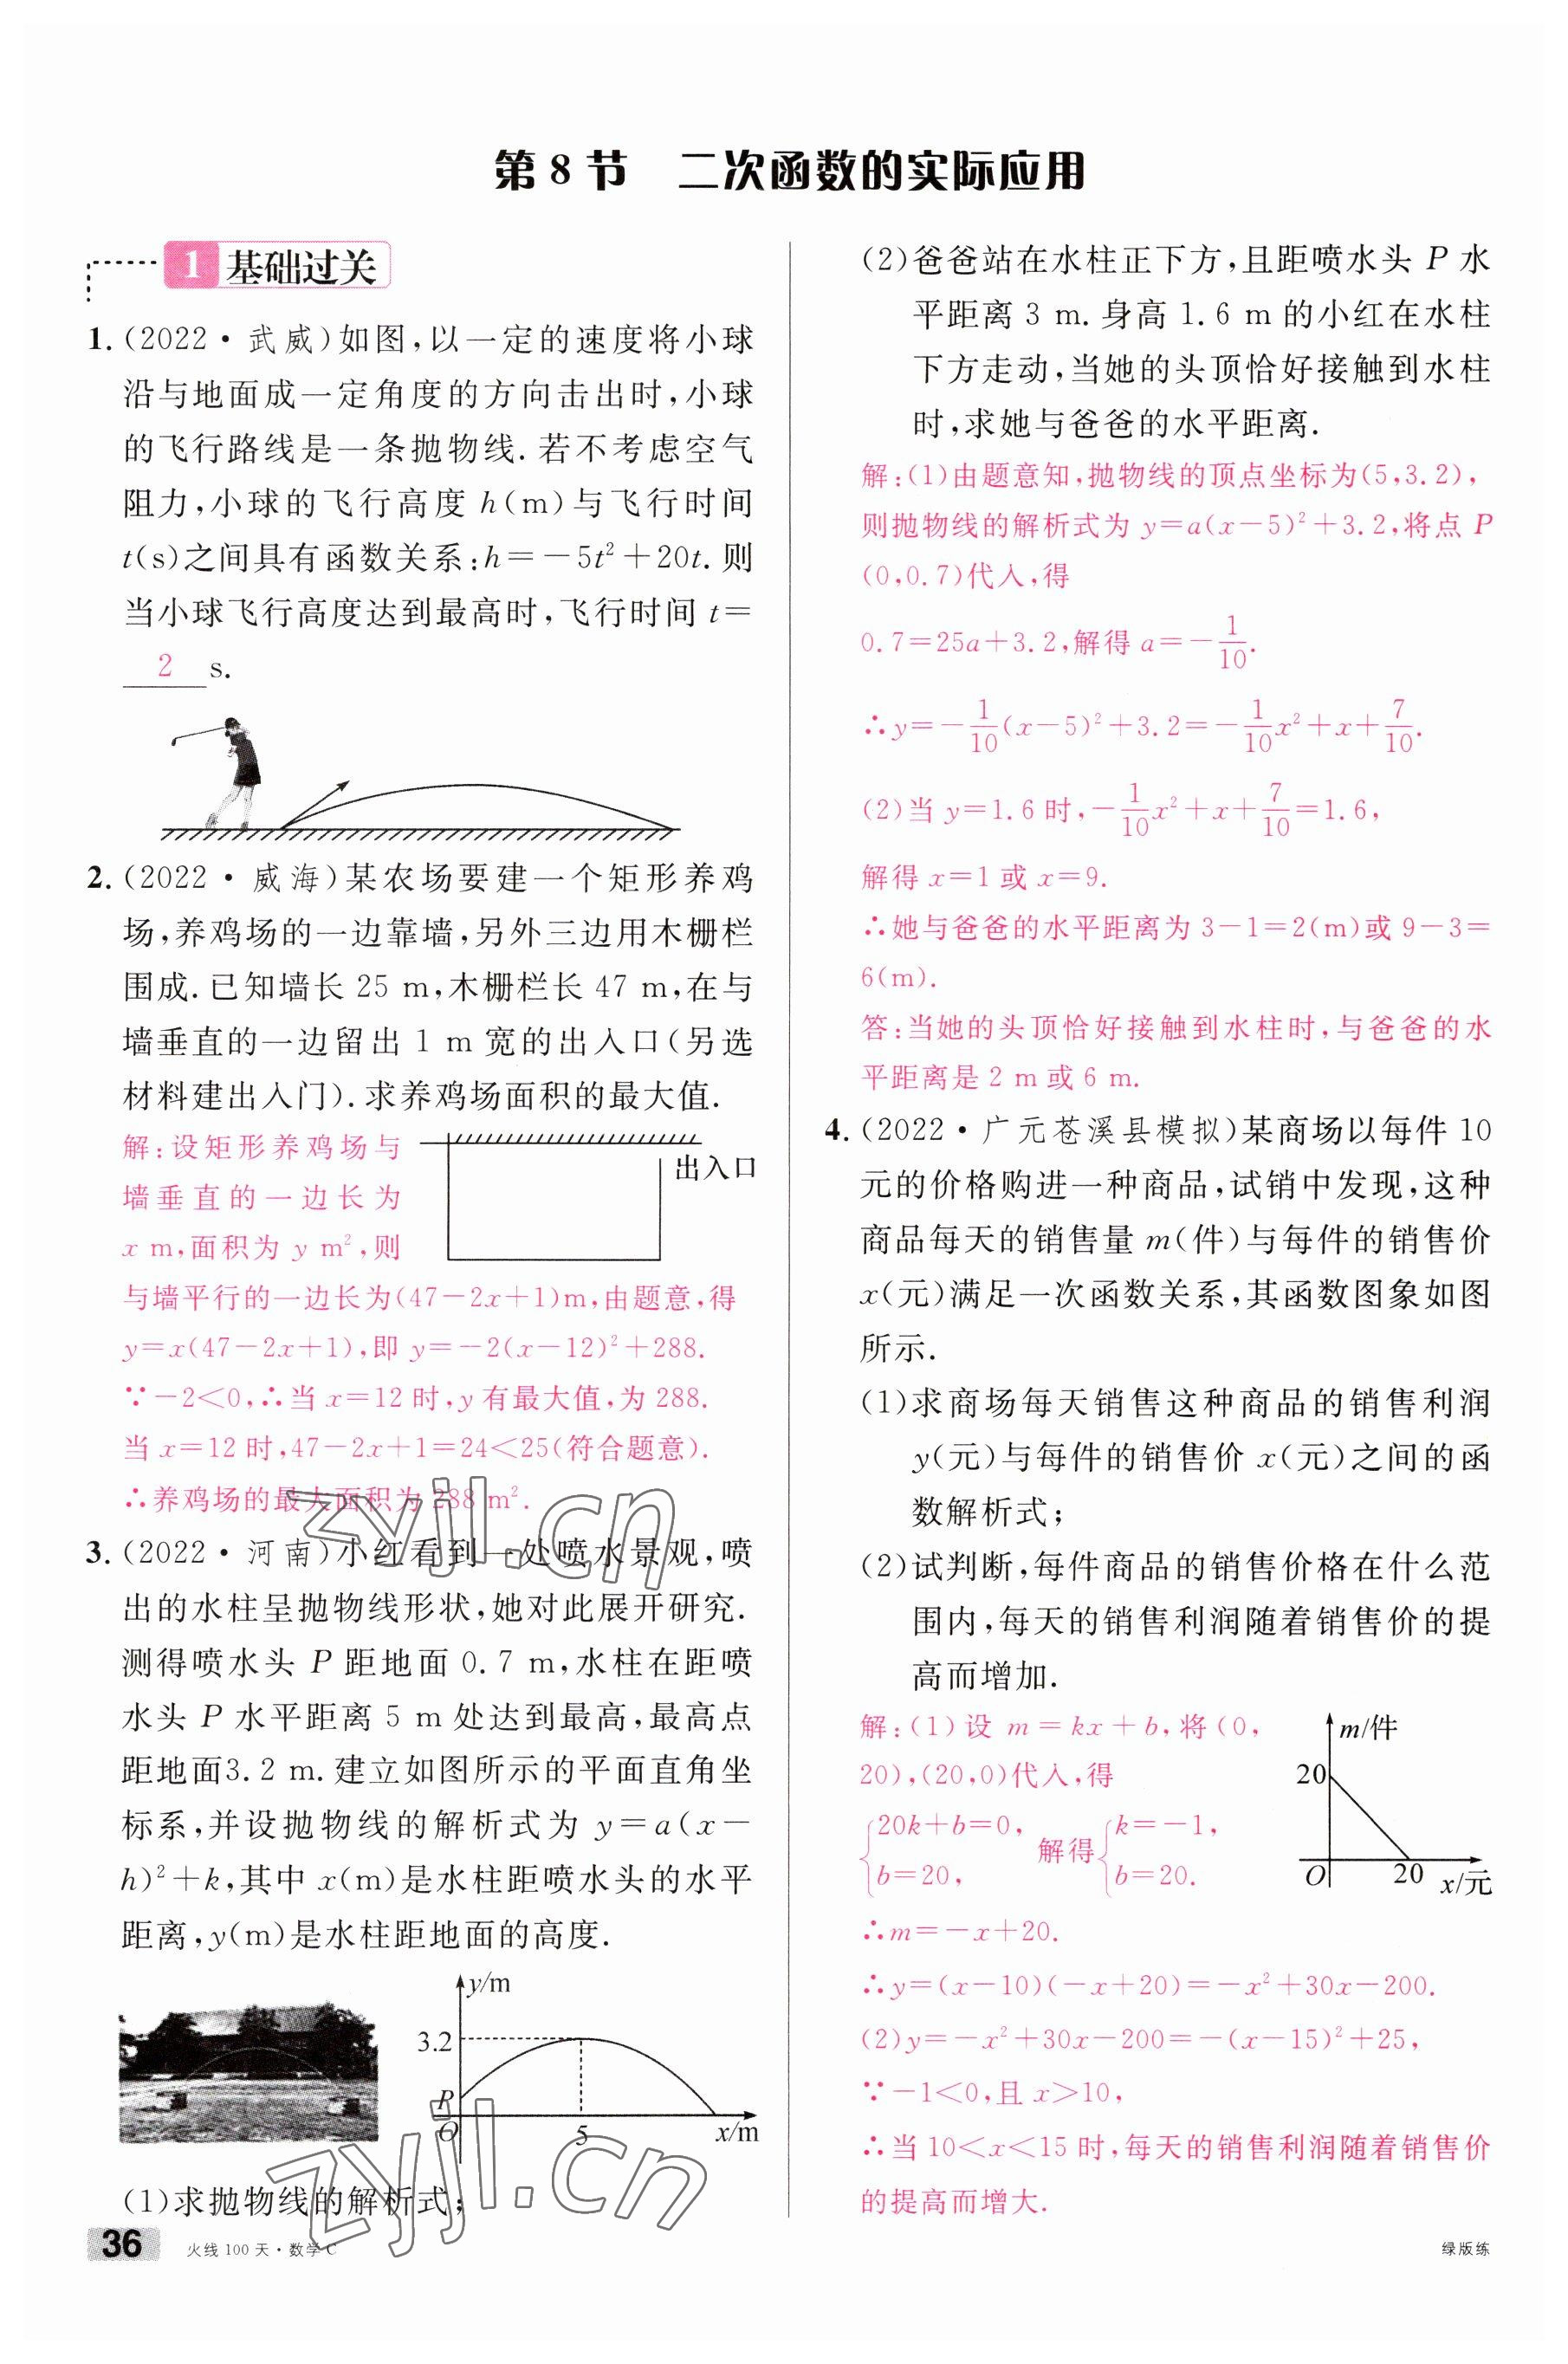 第 8 节　二次函数的实际应用
1 基础过关
1. (2022·武威)如图,以一定的速度将小球
沿与地面成一定角度的方向击出时,小球
的飞行路线是一条抛物线. 若不考虑空气
阻力,小球的飞行高度 h(m)与飞行时间
t(s)之间具有函数关系:h=-5t²+20t. 则
当小球飞行高度达到最高时,飞行时间 t=
2 s.
2. (2022·威海)某农场要建一个矩形养鸡
场,养鸡场的一边靠墙,另外三边用木栅栏
围成. 已知墙长 25 m,木栅栏长 47 m,在与
墙垂直的一边留出 1 m 宽的出入口(另选
材料建出入门). 求养鸡场面积的最大值.
解:设矩形养鸡场与
墙垂直的一边长为
x m,面积为 y m²,则
出入口
与墙平行的一边长为(47-2x+1)m,由题意,得
y=x(47-2x+1),即 y=-2(x-12)²+288.
∵-2<0,∴当 x=12 时,y 有最大值,为 288.
当 x=12 时,47-2x+1=24<25(符合题意).
∴养鸡场的最大面积为 288 m².
3. (2022·河南)小红看到一处喷水景观,喷
出的水柱呈抛物线形状,她对此展开研究.
测得喷水头 P 距地面 0.7 m,水柱在距喷
水头 P 水平距离 5 m 处达到最高,最高点
距地面3.2 m. 建立如图所示的平面直角坐
标系,并设抛物线的解析式为 y=a(x-
h)²+k,其中 x(m)是水柱距喷水头的水平
距离,y(m)是水柱距地面的高度.
y/m
3.2
P
O
5
x/m
(1)求抛物线的解析式;
(2)爸爸站在水柱正下方,且距喷水头 P 水
平距离 3 m. 身高 1.6 m 的小红在水柱
下方走动,当她的头顶恰好接触到水柱
时,求她与爸爸的水平距离.
解:(1)由题意知,抛物线的顶点坐标为(5,3.2),
则抛物线的解析式为 y=a(x-5)²+3.2,将点 P
(0,0.7)代入,得
0.7=25a+3.2,解得 a=-1/10.
∴y=-1/10(x-5)²+3.2=-1/10x²+x+7/10.
(2)当 y=1.6 时,-1/10x²+x+7/10=1.6,
解得 x=1 或 x=9.
∴她与爸爸的水平距离为 3-1=2(m)或 9-3=
6(m).
答:当她的头顶恰好接触到水柱时,与爸爸的水
平距离是 2 m 或 6 m.
4. (2022·广元苍溪县模拟)某商场以每件 10
元的价格购进一种商品,试销中发现,这种
商品每天的销售量 m(件)与每件的销售价
x(元)满足一次函数关系,其函数图象如图
所示.
(1)求商场每天销售这种商品的销售利润
y(元)与每件的销售价 x(元)之间的函
数解析式;
(2)试判断,每件商品的销售价格在什么范
围内,每天的销售利润随着销售价的提
高而增加.
解:(1)设 m=kx+b,将(0,
20),(20,0)代入,得
{20k+b=0, 解得 {k=-1,
b=20, b=20.
m/件
20
O
20
x/元
∴m=-x+20.
∴y=(x-10)(-x+20)=-x²+30x-200.
(2)y=-x²+30x-200=-(x-15)²+25,
∵-1<0,且 x>10,
∴当 10<x<15 时,每天的销售利润随着销售价
的提高而增大.
zyjl.cn
zyjl.cn
36 火线 100 天·数学 C
绿版练